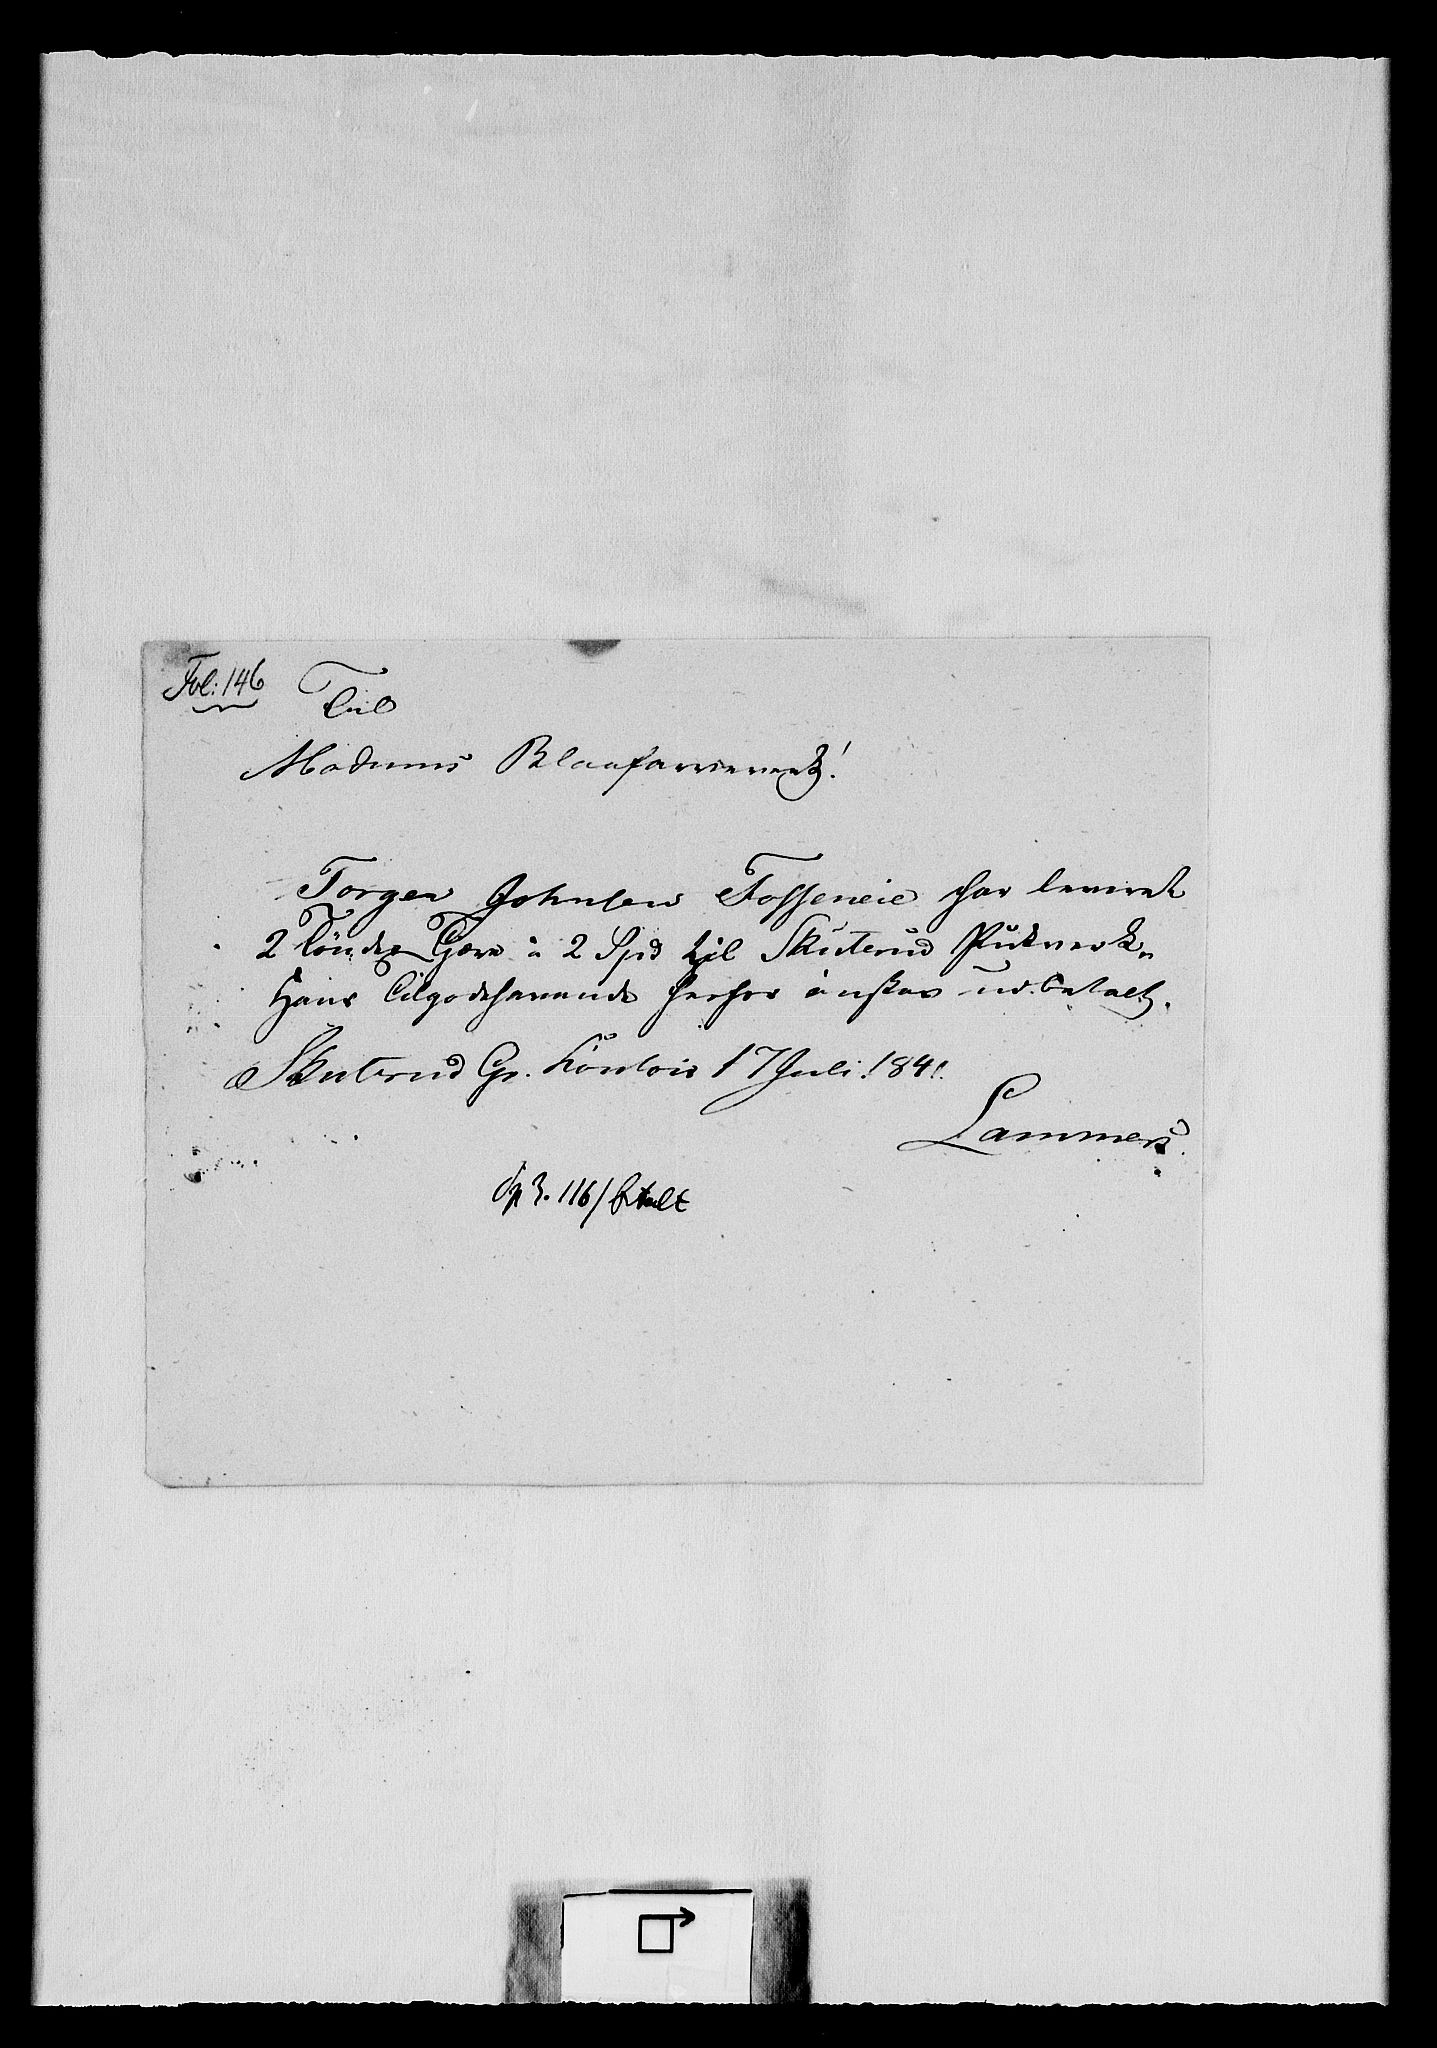 Fol: 146
Til
Modums Blaafarveverk!
Torger Johnsen Fosseneie har leveret
2 Tönder Tjære à 2 Spd til Skuterud Pukverk.
Hans Tilgodehavende herfor önskes udbetalt.
Skuterud Gr. Contoir 17 Juli 1841.
Lammers.
116/ betalt